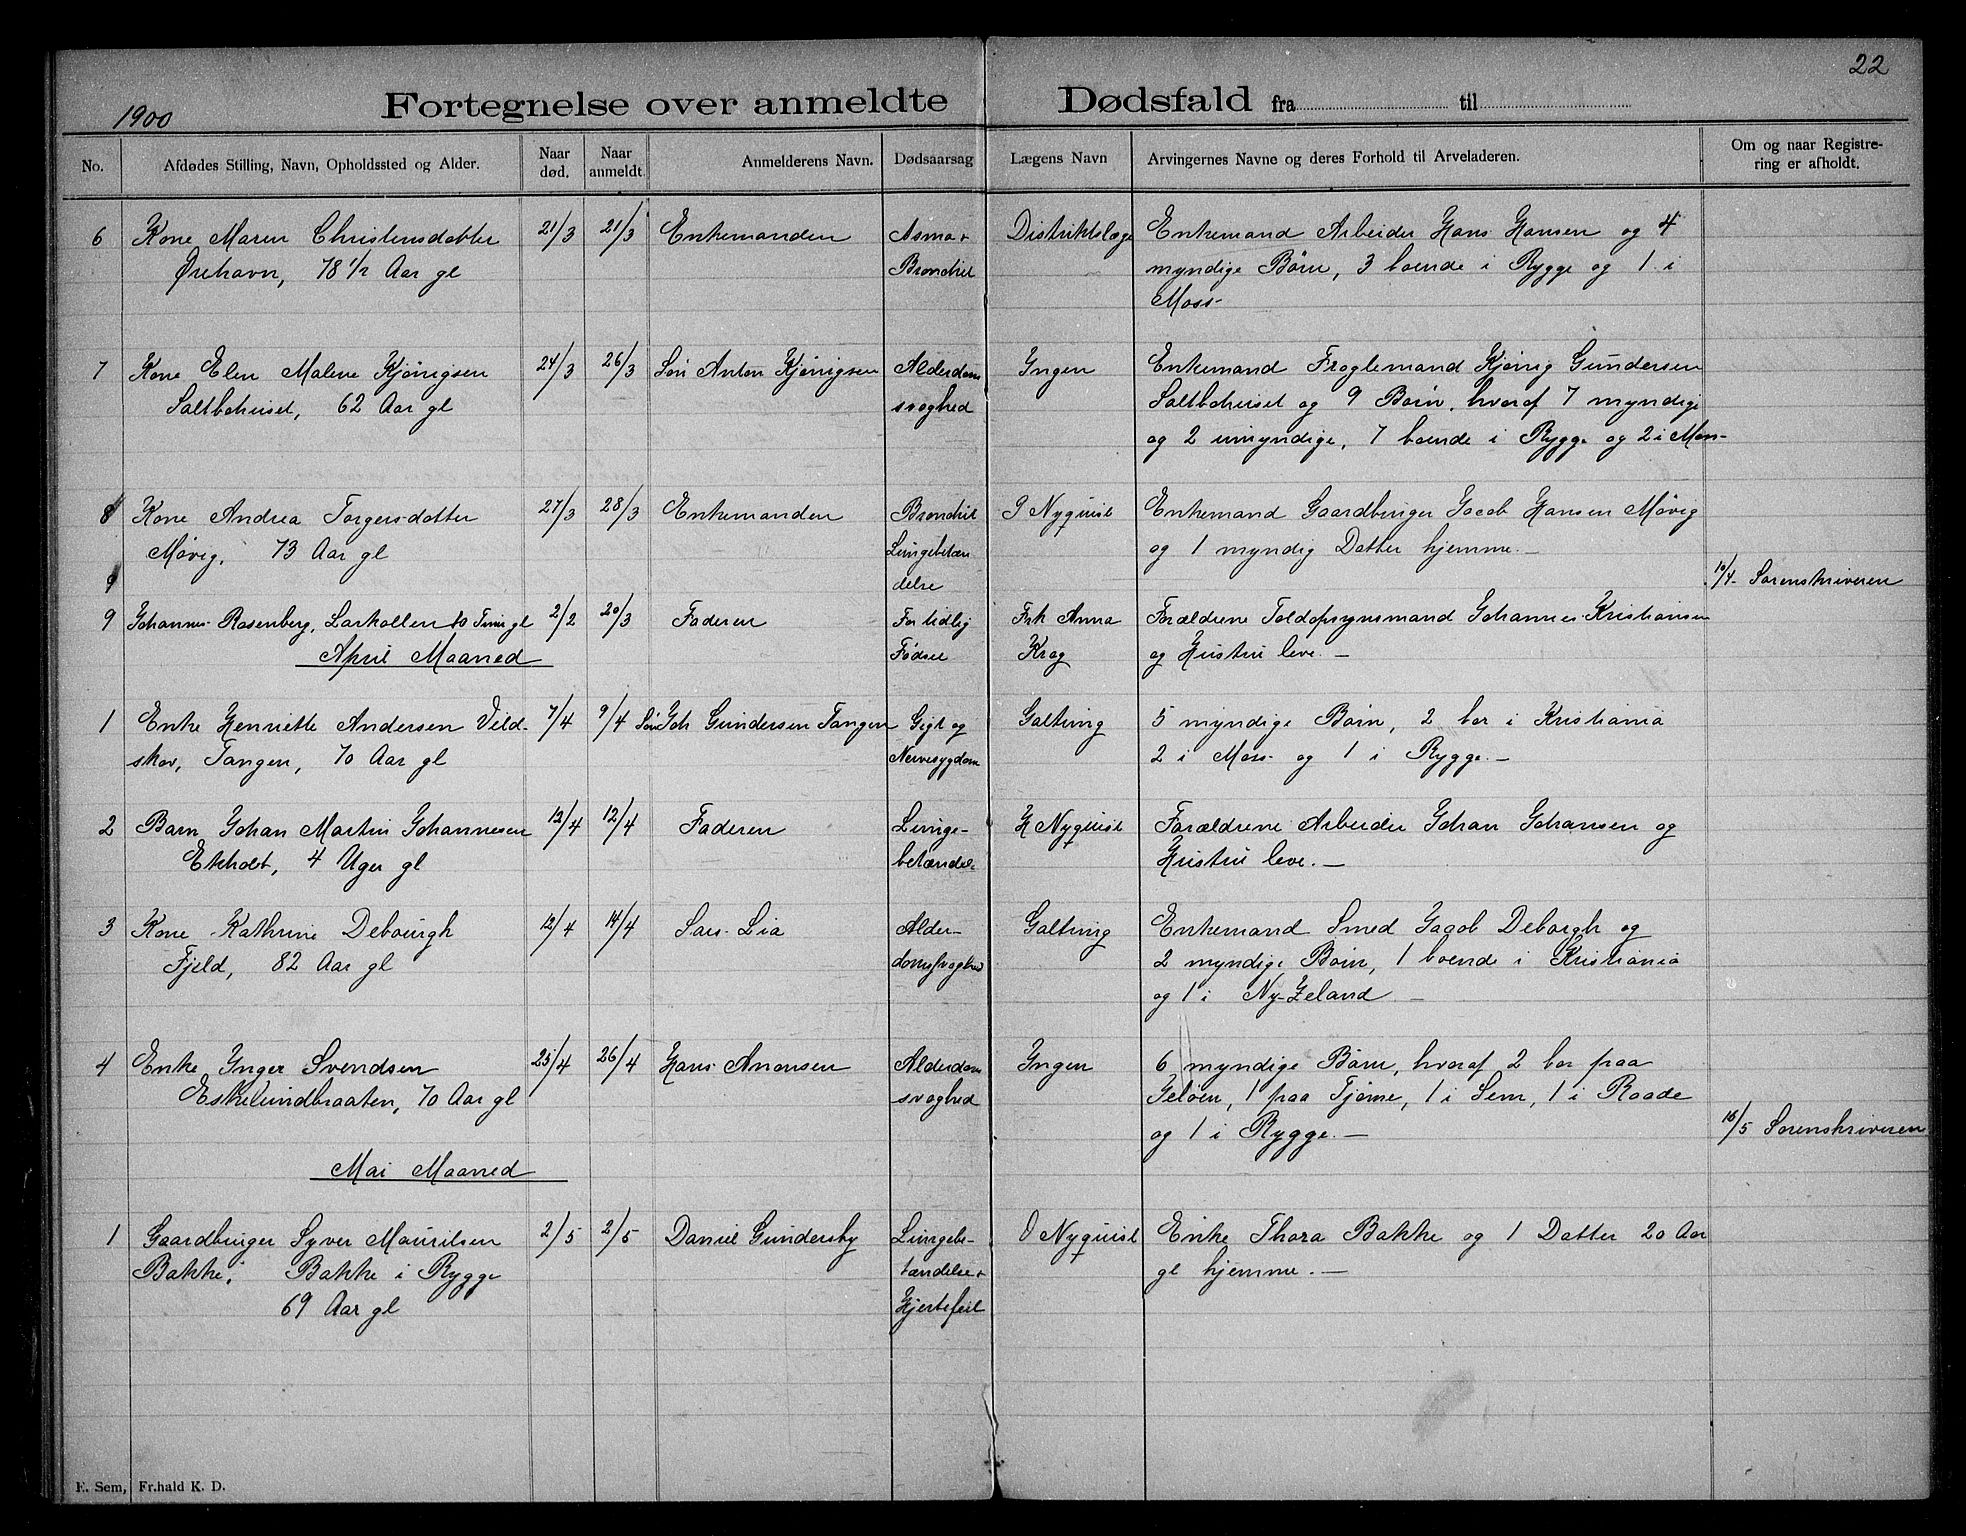 22
1900 Fortegnelse over anmeldte Dødsfald fra til
No. Afdødes Stilling, Navn, Opholdssted og Alder. Naar død. Naar anmeldt. Anmelderens Navn. Dødsaarsag Lægens Navn Arvingernes Navne og deres Forhold til Arveladeren. Om og naar Registrering er afholdt.
6 Kone Maren Christensdatter 21/3 21/3 Enkemanden Asma + Distriktslæge Enkemand Arbeider Hans Hansen og 4
Ørehavn, 78 1/2 Aar gl Bronchit myndige Børn, 3 boende i Rygge og 1 i
Moss-
7 Kone Elen Malene Kjønigsen 24/3 26/3 Søn Anton Kjønigsen Alderdoms Ingen Enkemand Kjønig Gundersen
Saltbohuset, 62 Aar gl svaghed Saltbohuset og 9 Børn, hvoraf 7 myndige
og 2 umyndige, 7 boende i Rygge og 2 i Moss-
8 Kone Andrea Torgersdatter 27/3 28/3 Enkemanden Bronchit Nyquist Enkemand Gaardbruger Jacob Hansen Møvig
Møvig, 73 Aar gl Lungebetæn og 1 myndig Datter hjemme. —
9 delse 10/4 Sorenskriveren
9 Johannes Rosenberg, Larkollen 10 Timer gl 2/2 20/3 Faderen For tidlig Frk Anna Forældrene Toldopsynsmand Johannes Kristiansen
April Maaned Fødsel Krog og Hustru leve. —
1 Enke Henriette Andersen Vild- 7/4 9/4 Søn Joh Gundersen Tangen Gigt og Galtung 5 myndige Børn, 2 bor i Kristiania
skov, Tangen, 70 Aar gl Nervesygdom 2 i Moss og 1 i Rygge. —
2 Barn Johan Martin Johannesen 12/4 12/4 Faderen Lunge- Nyquist Forældrene Arbeider Johan Johansen og
Ekholt, 4 Uger gl betændel- Hustru leve. —
3 Kone Kathrine Debourgh 12/4 14/4 Lars Lia Alder- Galtung Enkemand Smed Jacob Deborgh og
Fjeld, 82 Aar gl domssvaghed 2 myndige Børn, 1 boende i Kristiania
og 1 i Ny-Zeland —
4 Enke Inger Svendsen 25/4 26/4 Hans Anonsen Alderdoms Ingen 6 myndige Børn, hvoraf 2 bor paa
Eskelundbraaten, 70 Aar gl svaghed Jeløen, 1 paa Tjøme, 1 i Sem, 1 i Raade
og 1 i Rygge. — 16/5 Sorenskriveren
Mai Maaned
1 Gaardbruger Syver Mauritsen 2/5 2/5 Daniel Gundersby Lungebe- O Nyquist Enke Thora Bakke og 1 Datter 20 Aar
Bakke, Bakke i Rygge tændelse + gl hjemme. —
69 Aar gl Hjertefeil
E. Sem, Fr.hald K. D.